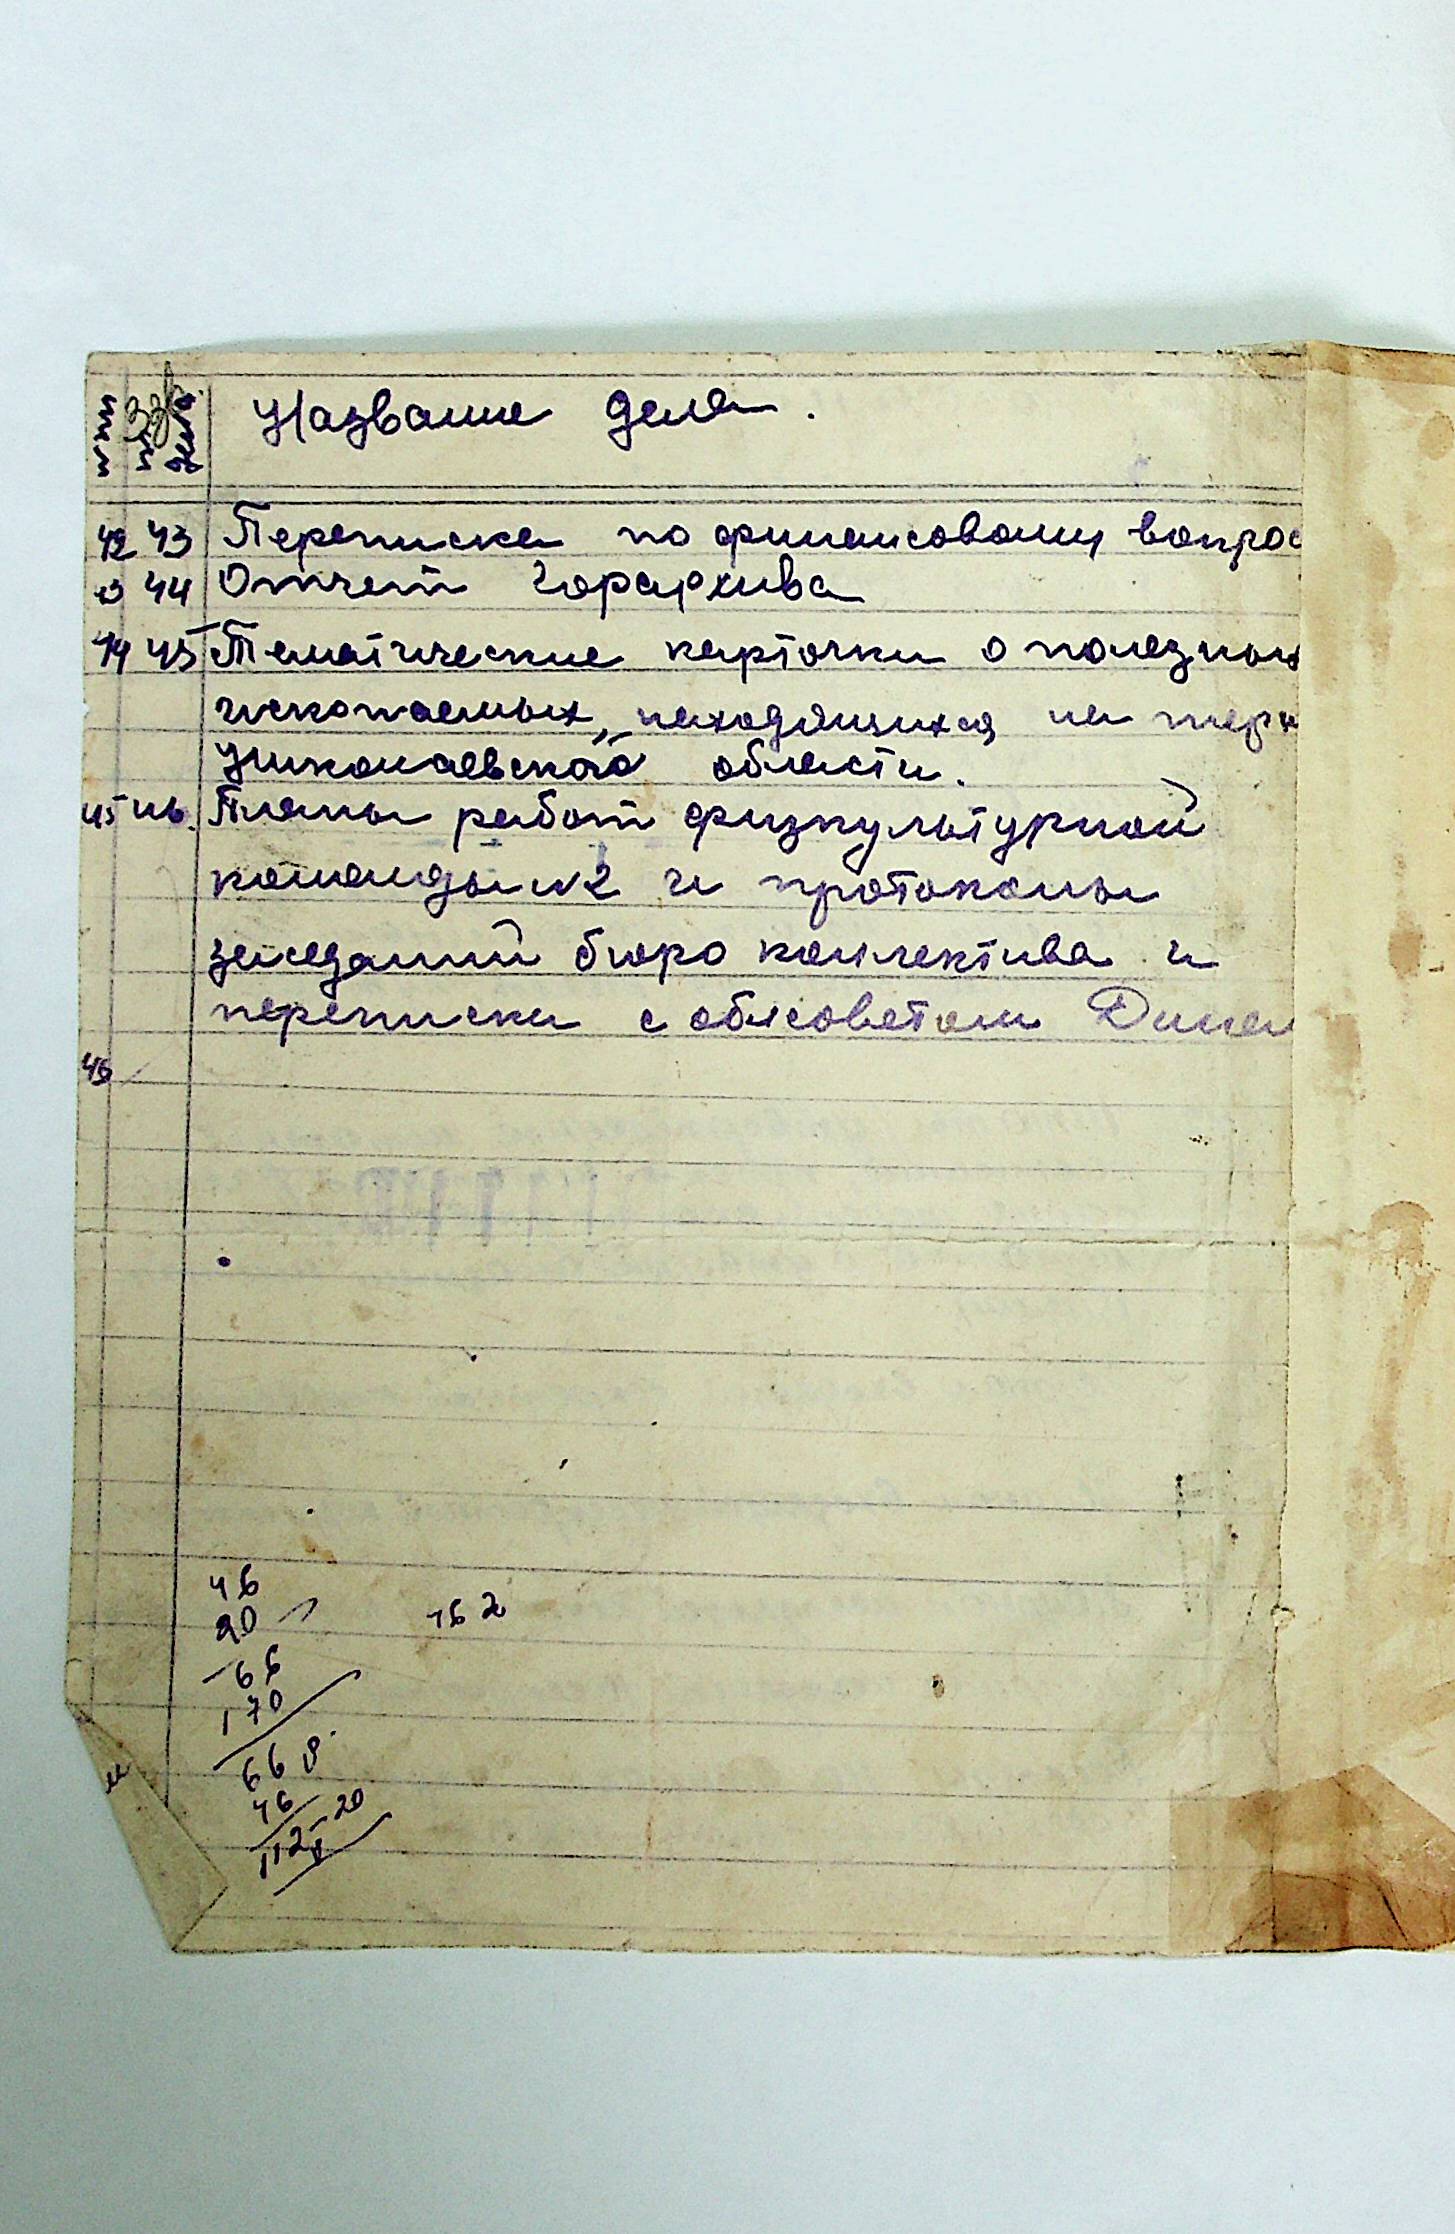 Название дела.
42 43 Переписка по финансовому вопрос
44 Отчет Горархива
44 45 Тематические карточки о полезных
ископаемых, находящихся на терри
Николаевской области.
45 46. Планы работ физкультурной
команды №2 и протоколы
заседаний бюро коллектива и
переписки с облсоветом Динам
46
46
20
66
170
66
46
112 20
162